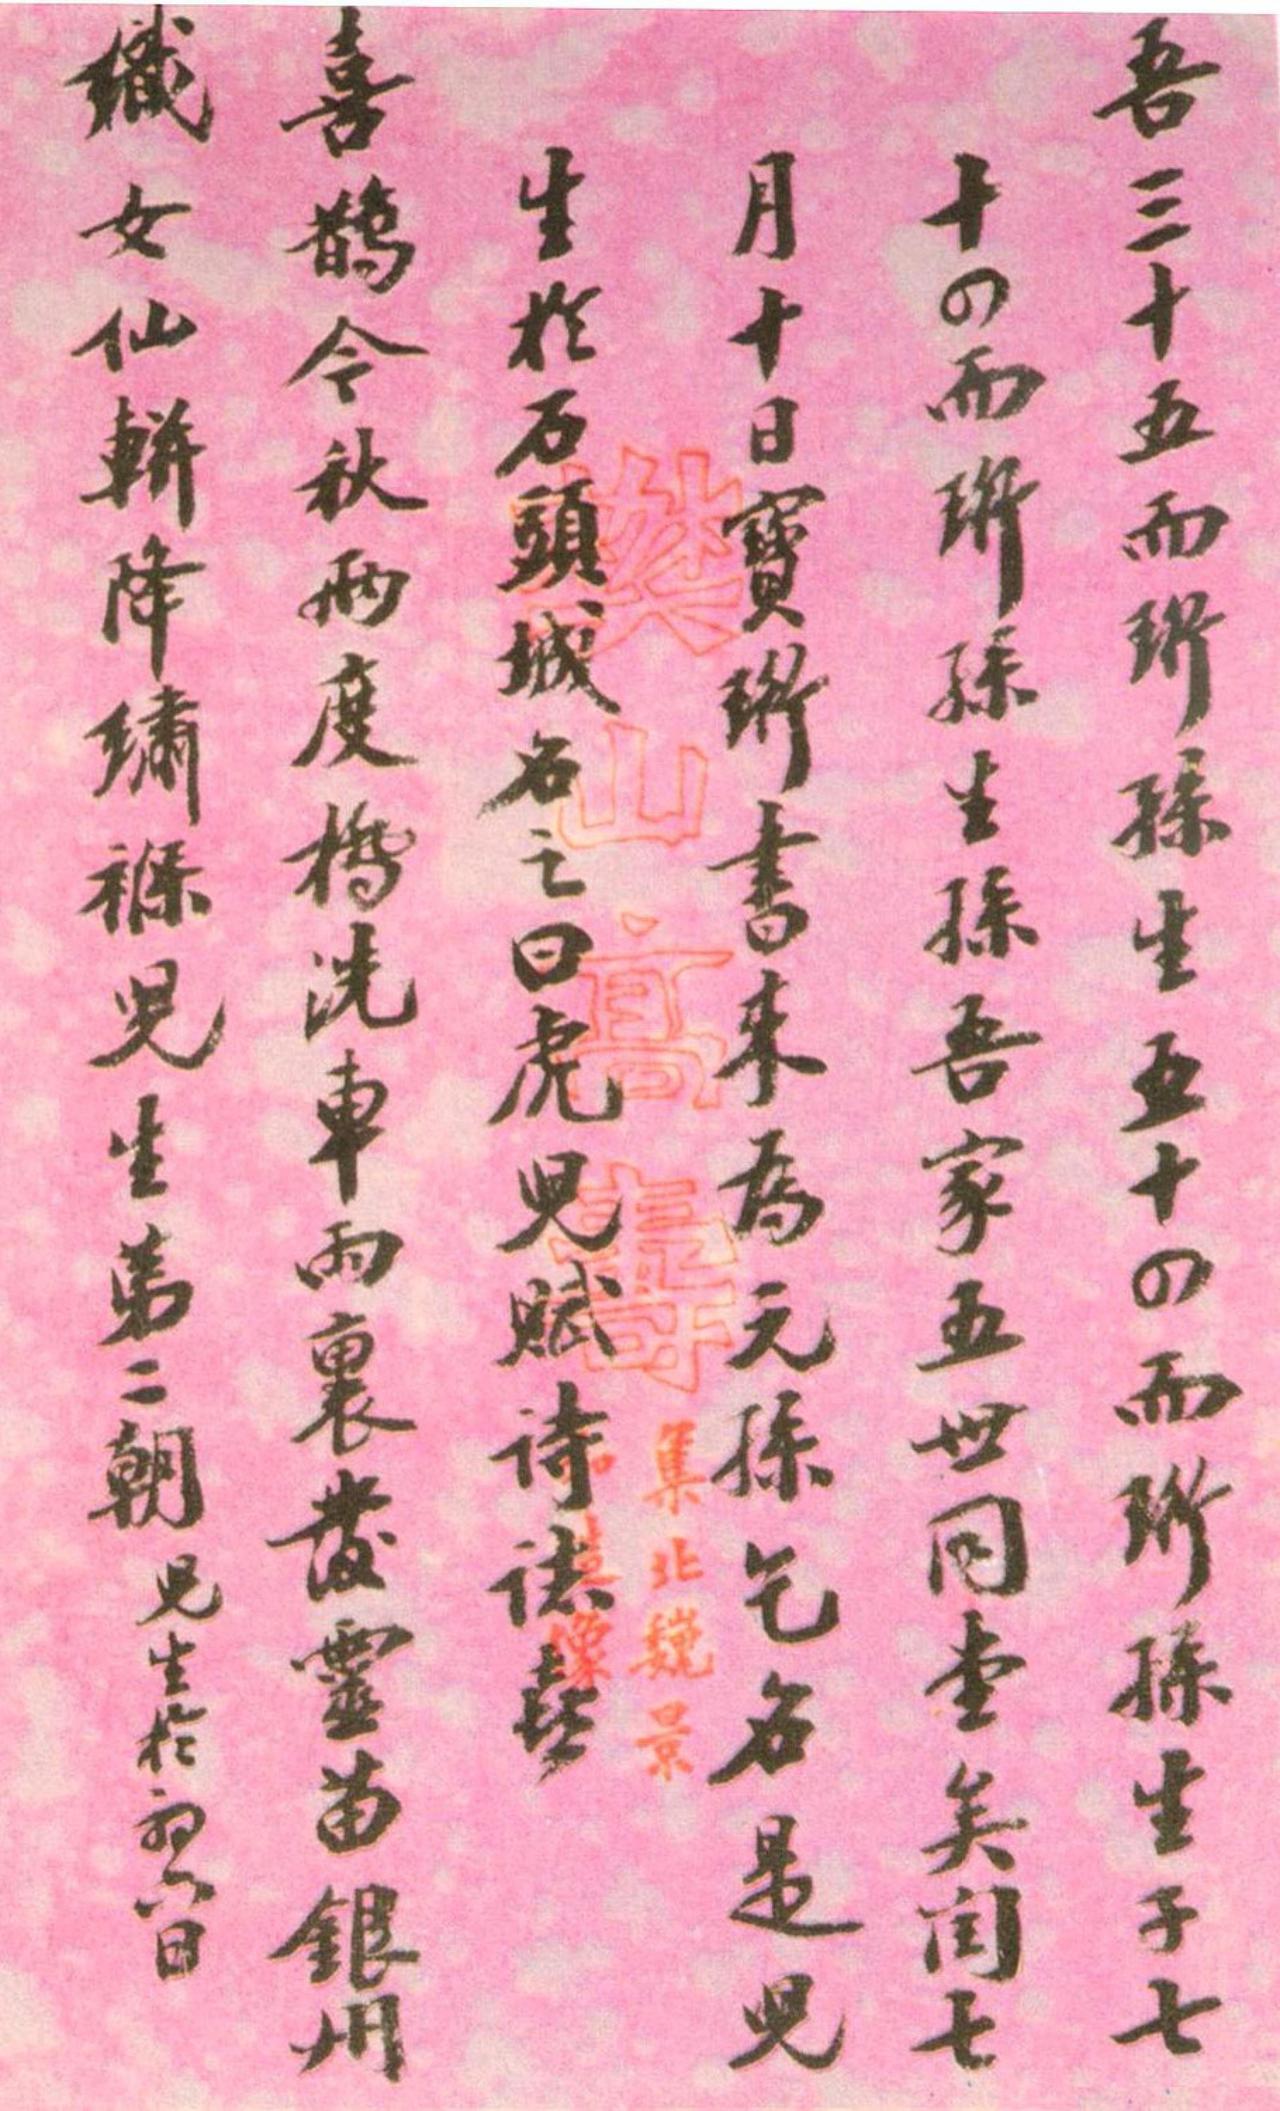 吾三十五而珩孫生五十四而珩孫生子七
十四而珩孫生孫吾家五世同堂矣閏七
月十日寶珩書來為元孫乞名是兒
生於石頭城名之曰虎兒賦詩誌喜
喜鵲今秋兩度橋洗車雨裏茁靈苗銀州
織女仙軿降繡褓兒生第二朝 兒生於初六日
樊山高壽
集北魏景